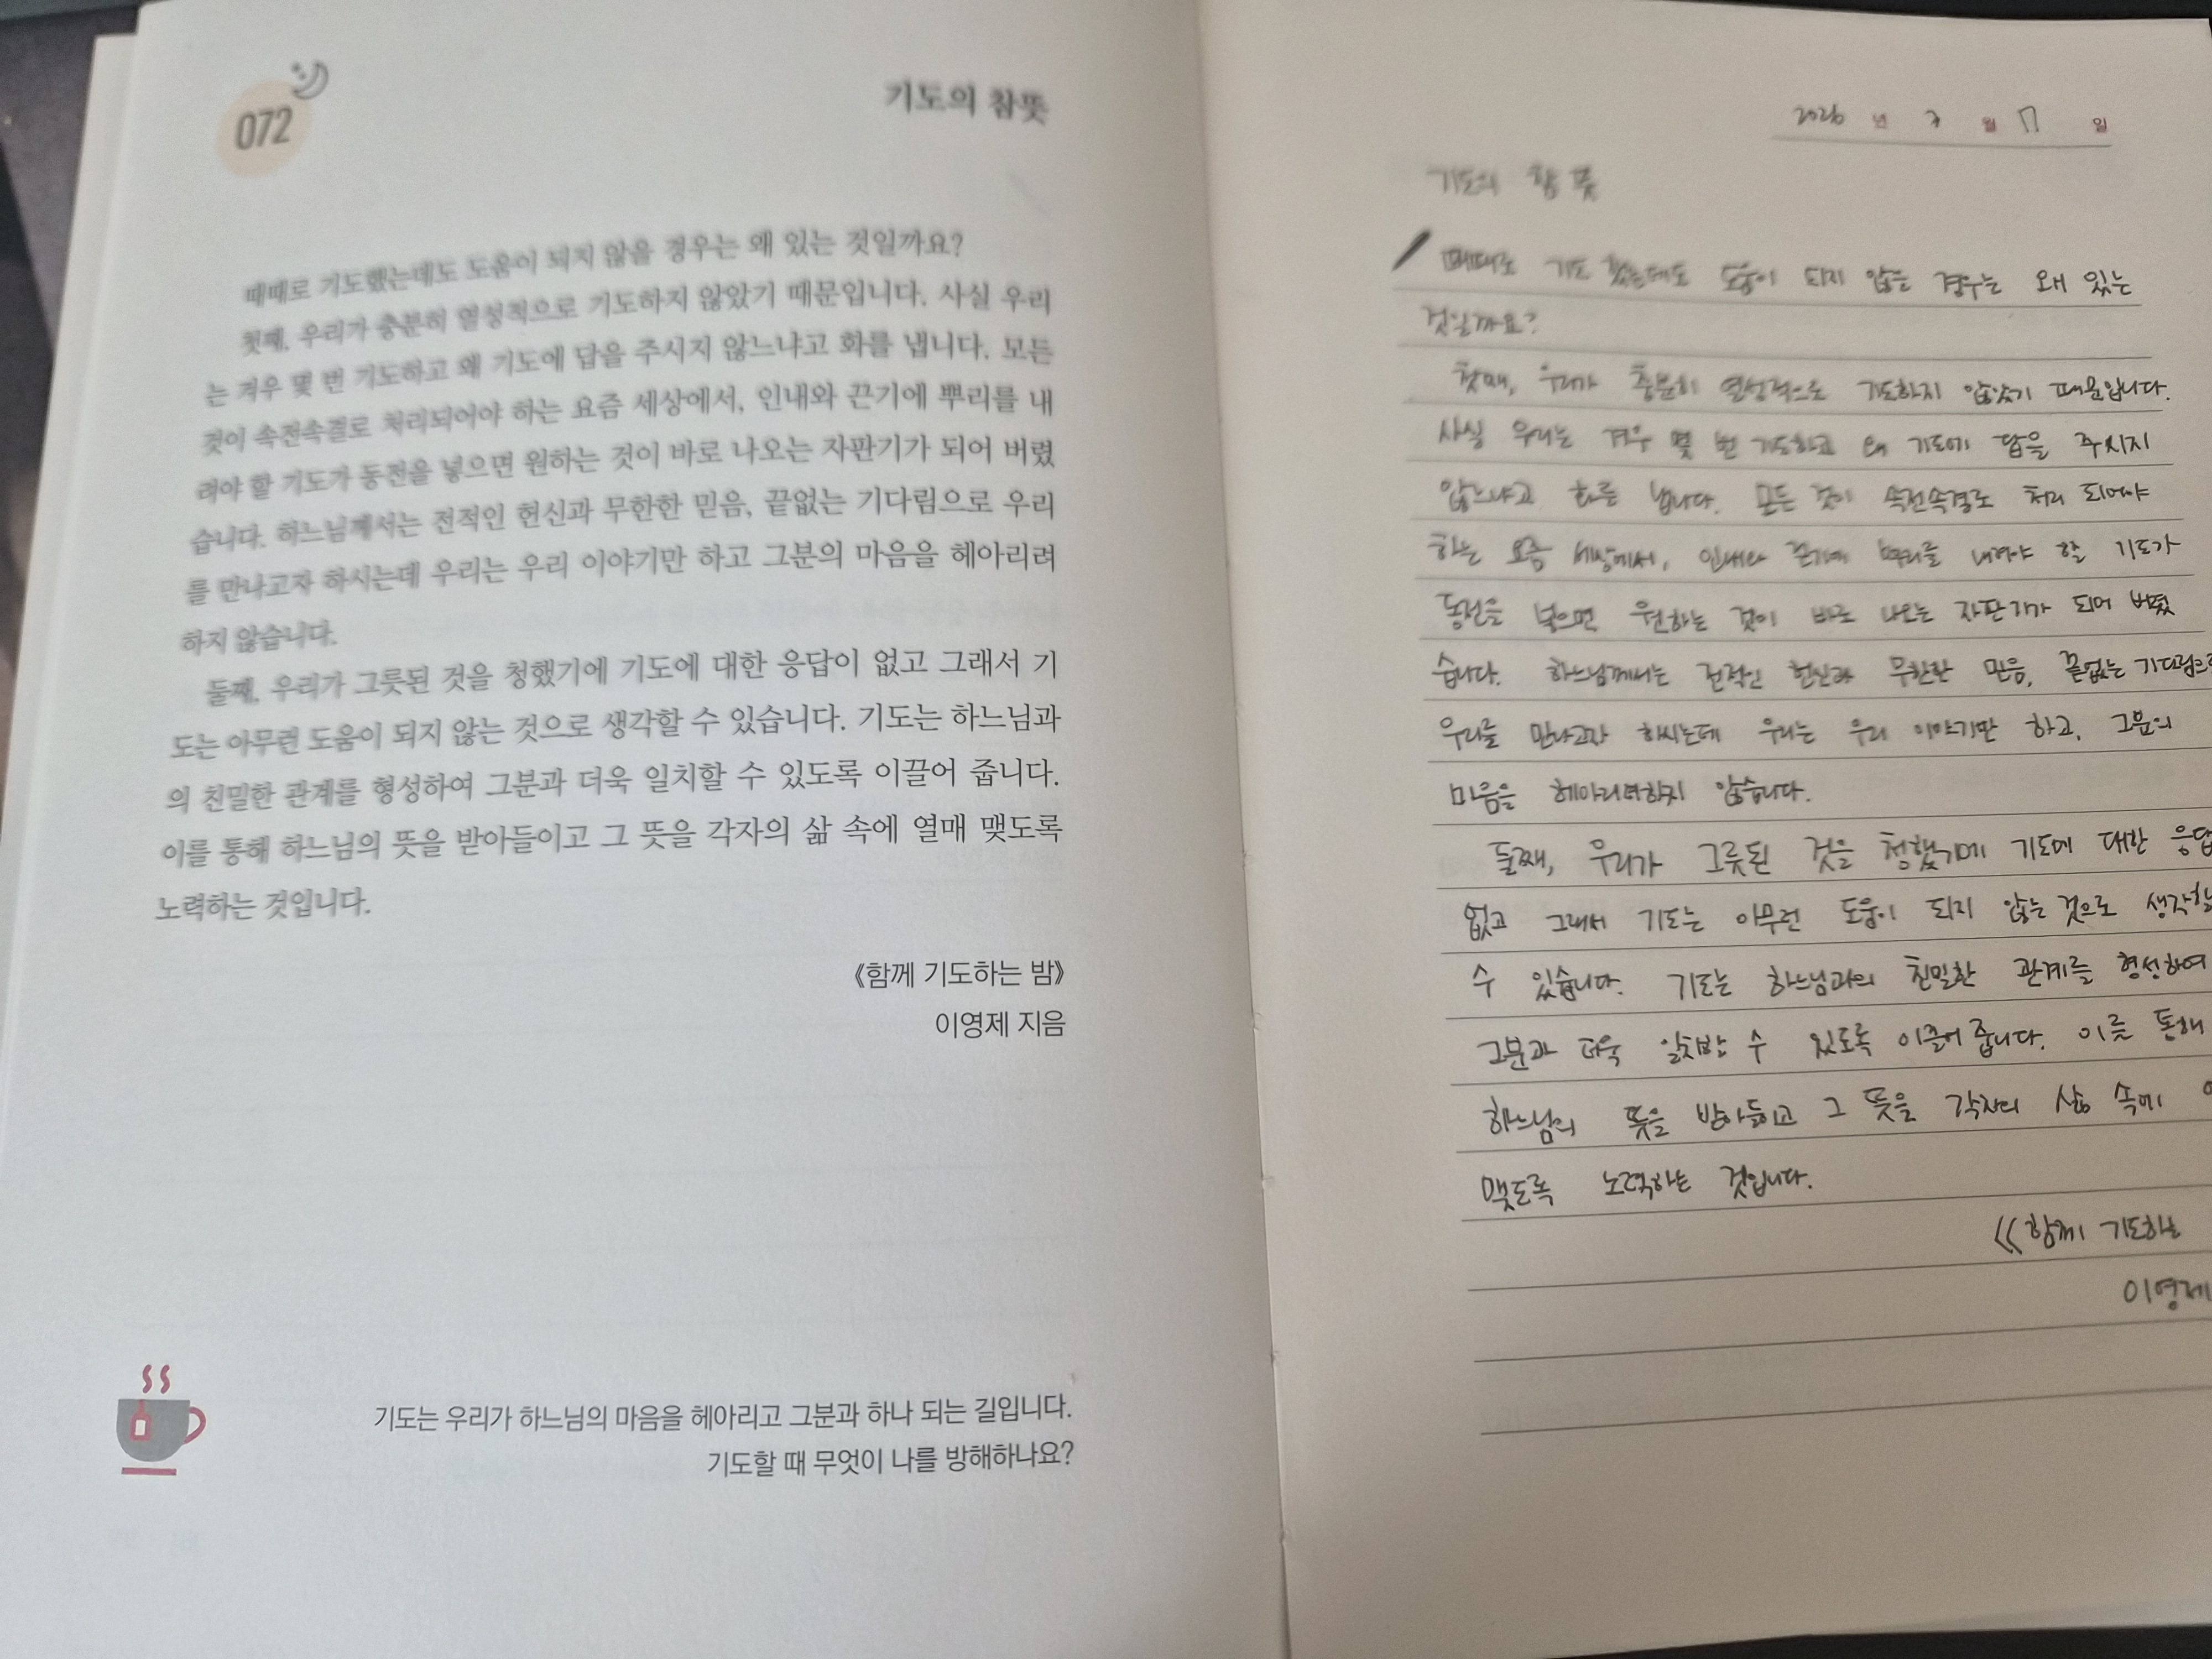 072
기도의 참뜻
때때로 기도했는데도 도움이 되지 않을 경우는 왜 있는 것일까요?
첫째, 우리가 충분히 열성적으로 기도하지 않았기 때문입니다. 사실 우리
는 겨우 몇 번 기도하고 왜 기도에 답을 주시지 않느냐고 화를 냅니다. 모든
것이 속전속결로 처리되어야 하는 요즘 세상에서, 인내와 끈기에 뿌리를 내
려야 할 기도가 동전을 넣으면 원하는 것이 바로 나오는 자판기가 되어 버렸
습니다. 하느님께서는 전적인 헌신과 무한한 믿음, 끝없는 기다림으로 우리
를 만나고자 하시는데 우리는 우리 이야기만 하고 그분의 마음을 헤아리려
하지 않습니다.
둘째, 우리가 그릇된 것을 청했기에 기도에 대한 응답이 없고 그래서 기
도는 아무런 도움이 되지 않는 것으로 생각할 수 있습니다. 기도는 하느님과
의 친밀한 관계를 형성하여 그분과 더욱 일치할 수 있도록 이끌어 줍니다.
이를 통해 하느님의 뜻을 받아들이고 그 뜻을 각자의 삶 속에 열매 맺도록
노력하는 것입니다.
《함께 기도하는 밤》
이영제 지음
기도는 우리가 하느님의 마음을 헤아리고 그분과 하나 되는 길입니다.
기도할 때 무엇이 나를 방해하나요?
2026 년 7 월 17 일
기도의 참 뜻
때때로 기도 했는데도 도움이 되지 않을 경우는 왜 있는
것일까요?
첫째, 우리가 충분히 열성적으로 기도하지 않았기 때문입니다.
사실 우리는 겨우 몇 번 기도하고 왜 기도에 답을 주시지
않느냐고 화를 냅니다. 모든 것이 속전속결로 처리 되어야
하는 요즘 세상에서, 인내와 끈기에 뿌리를 내려야 할 기도가
동전을 넣으면 원하는 것이 바로 나오는 자판기가 되어 버렸
습니다. 하느님께서는 전적인 헌신과 무한한 믿음, 끝없는 기다림으로
우리를 만나고자 하시는데 우리는 우리 이야기만 하고, 그분의
마음을 헤아리려하지 않습니다.
둘째, 우리가 그릇된 것을 청했기에 기도에 대한 응답
없고 그래서 기도는 아무런 도움이 되지 않는 것으로 생각할
수 있습니다. 기도는 하느님과의 친밀한 관계를 형성하여
그분과 더욱 일치할 수 있도록 이끌어 줍니다. 이를 통해
하느님의 뜻을 받아들이고 그 뜻을 각자의 삶 속에
맺도록 노력하는 것입니다.
《함께 기도하는
이영제